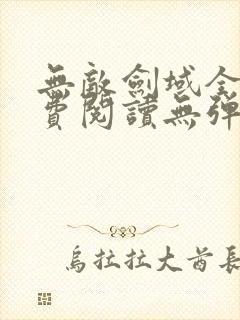 無敵劍域全
費閱讀無彈
烏拉拉大酋長